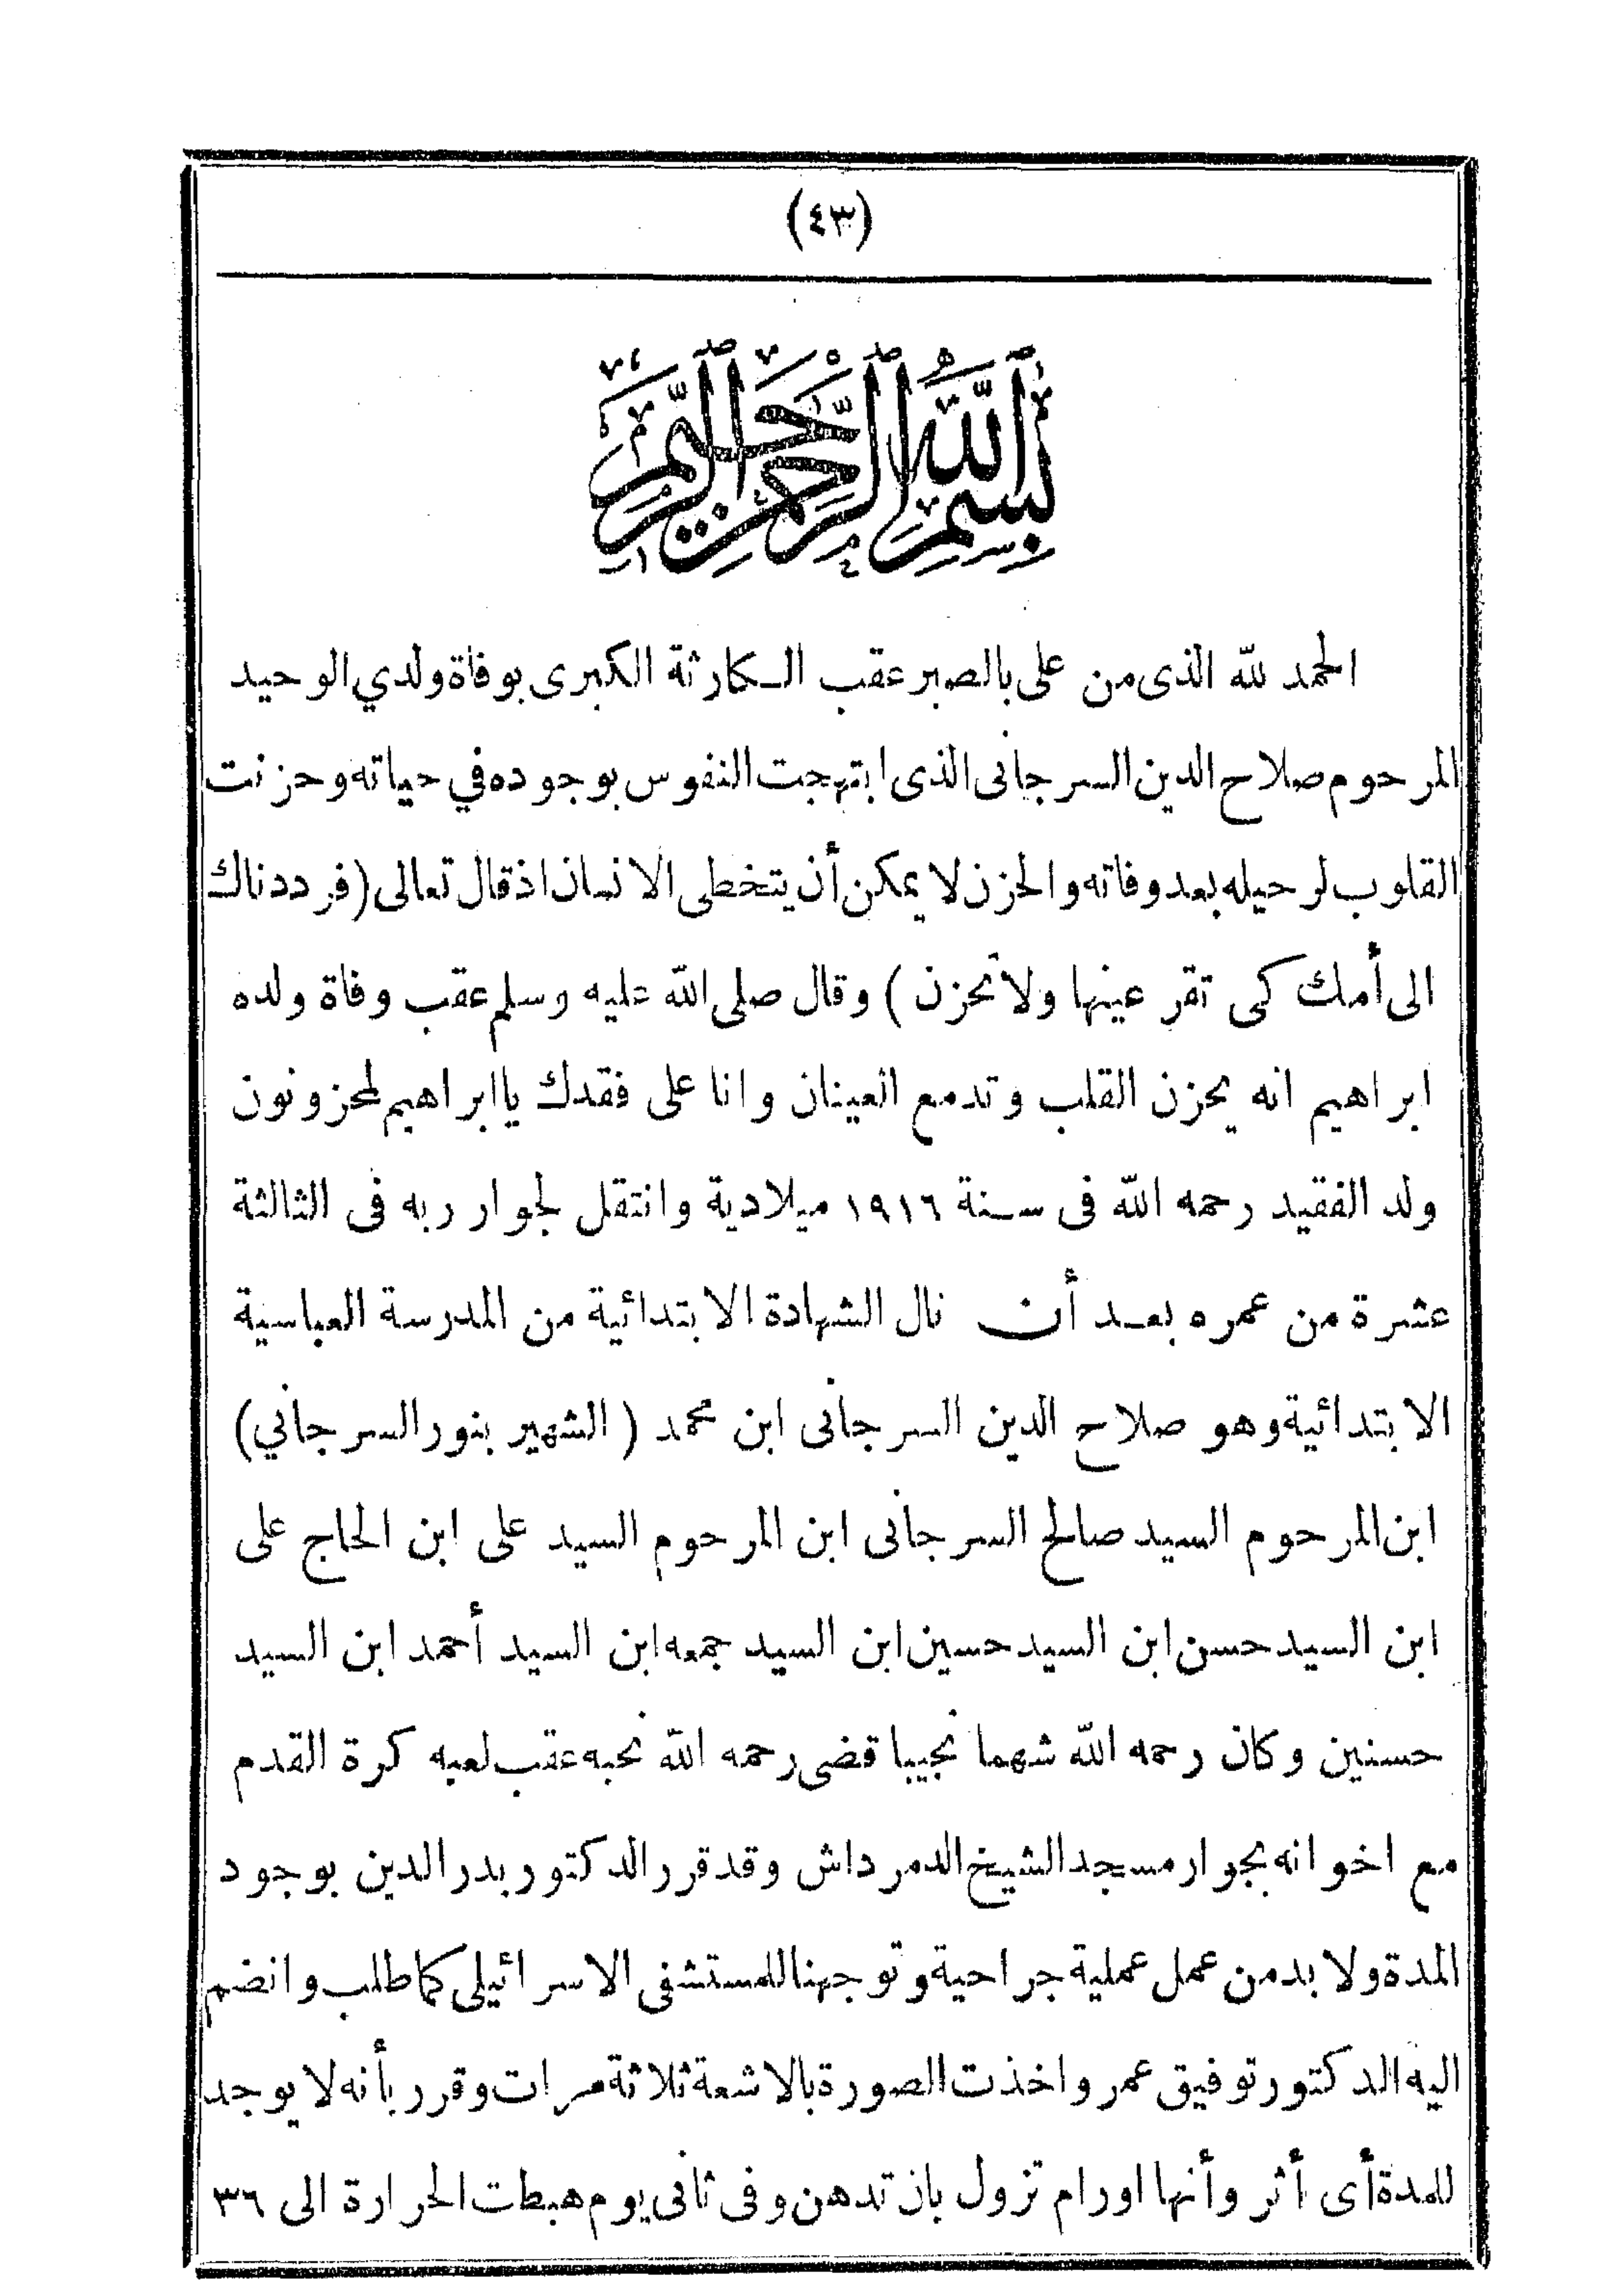 (٤٣)
بسم الله الرحمن الرحيم
الحمد لله الذى من على بالصبر عقب الكارثة الكبرى بوفاة ولدي الوحيد
المرحوم صلاح الدين السرجانى الذى ابتهجت النفوس بوجوده في حياته وحزنت
القلوب لرحيله بعد وفاته والحزن لا يمكن أن يتخطى الانسان اذ قال تعالى (فرددناك
الى أمك كى تقر عينها ولا تحزن) وقال صلى الله عليه وسلم عقب وفاة ولده
ابراهيم انه يحزن القلب وتدمع العينان وانا على فقدك يا ابراهيم لمحزونون
ولد الفقيد رحمه الله فى سنة ١٩١٦ ميلادية وانتقل لجوار ربه فى الثالثة
عشرة من عمره بعد أن نال الشهادة الابتدائية من المدرسة العباسية
الابتدائية وهو صلاح الدين السرجانى ابن محمد (الشهير بنور السرجاني)
ابن المرحوم السيد صالح السرجانى ابن المرحوم السيد على ابن الحاج على
ابن السيد حسن ابن السيد حسين ابن السيد جمعه ابن السيد أحمد ابن السيد
حسنين وكان رحمه الله شهما نجيبا قضى رحمه الله نحبه عقب لعبه كرة القدم
مع اخوانه بجوار مسجد الشيخ الدمرداش وقد قرر الدكتور بدر الدين بوجود
المدة ولا بد من عمل عملية جراحية وتوجهنا للمستشفى الاسرائيلى كما طلب وانضم
اليه الدكتور توفيق عمر واخذت الصورة بالاشعة ثلاثة مرات وقرر بأنه لا يوجد
للمدة أى أثر وأنها اورام تزول بان تدهن وفى ثانى يوم هبطت الحرارة الى ٣٦